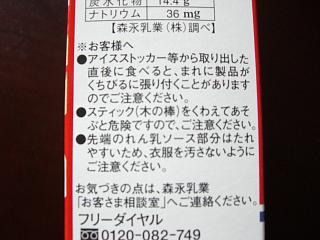 炭水化物 14.4g
ナトリウム 36mg
【森永乳業(株)調べ】
※お客様へ
●アイスストッカー等から取り出した
直後に食べると、まれに製品が
くちびるに張り付くことがあります
のでご注意ください。
●スティック(木の棒)をくわえてあそ
ぶと危険ですので、ご注意ください。
●先端のれん乳ソース部分はたれ
やすいため、衣服を汚さないように
ご注意ください。
お気づきの点は、森永乳業
「お客さま相談室」へご連絡ください。
フリーダイヤル
0120-082-749